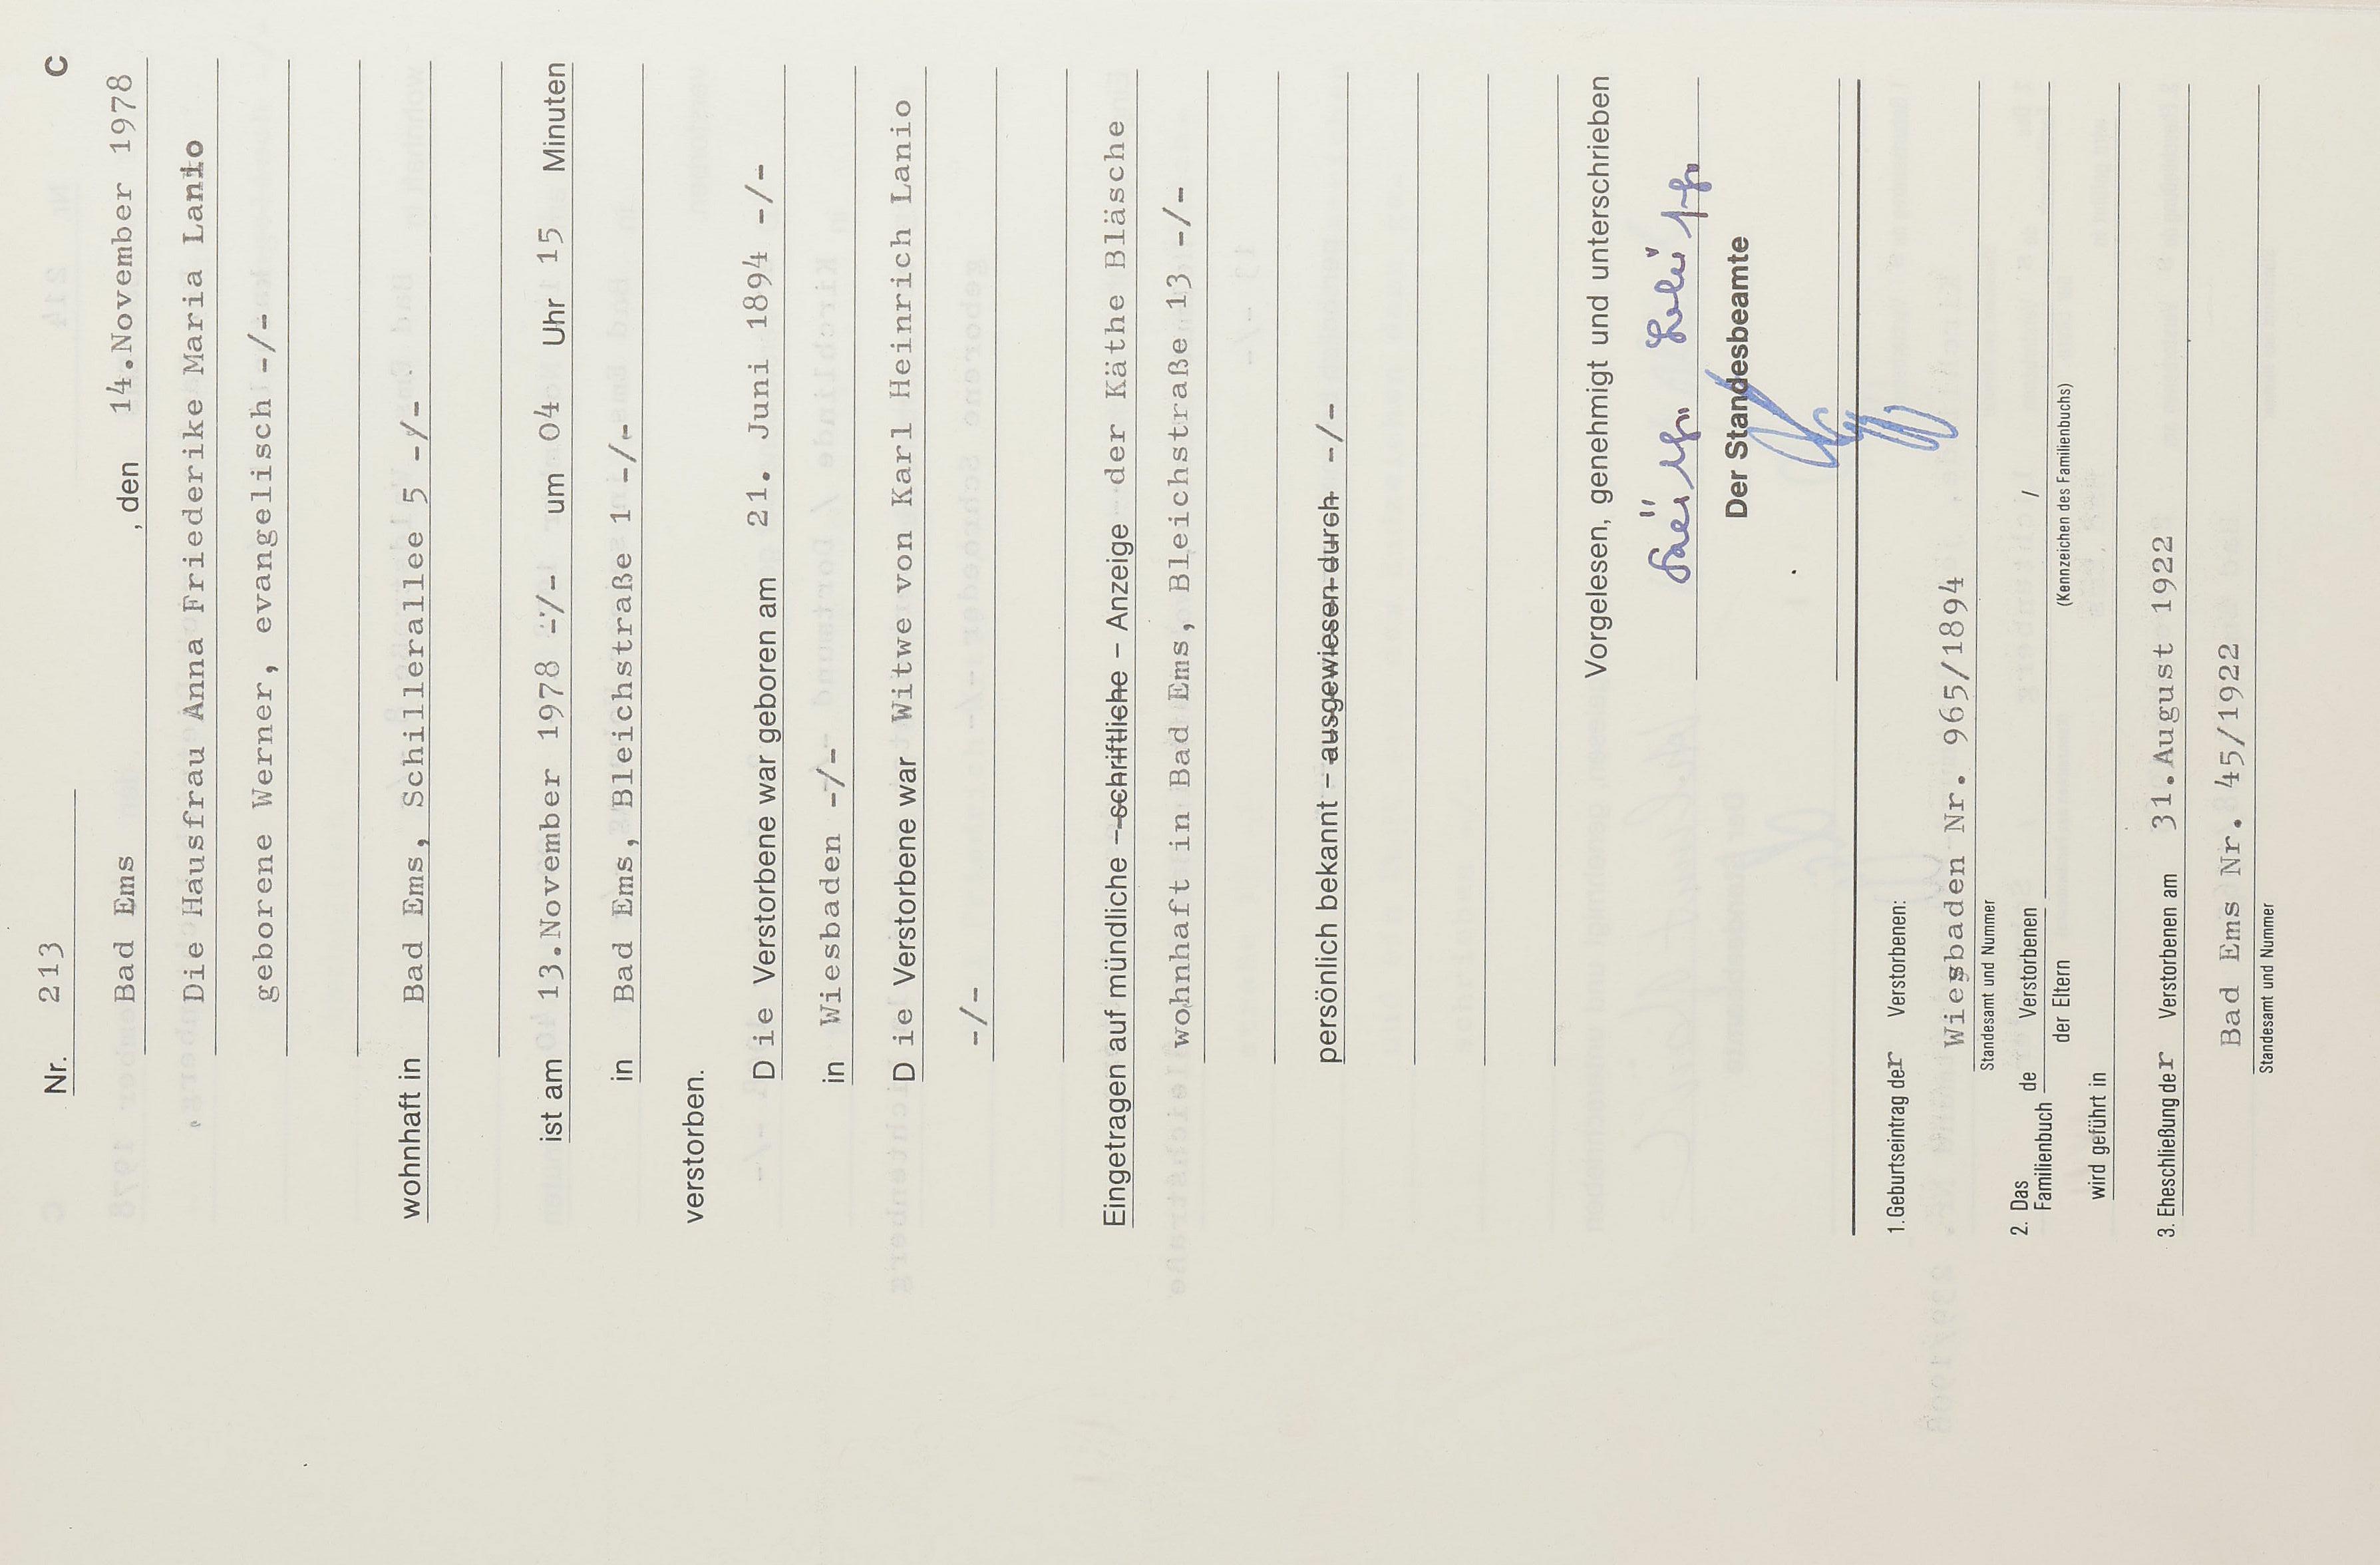 Nr. 213 C
Bad Ems , den 14.November 1978
Die Hausfrau Anna Friederike Maria Lanio
geborene Werner, evangelisch -/-
wohnhaft in Bad Ems, Schillerallee 5 -/-
ist am 13.November 1978 -/- um 04 Uhr 15 Minuten
in Bad Ems, Bleichstraße 1 -/-
verstorben.
Die Verstorbene war geboren am 21. Juni 1894 -/-
in Wiesbaden -/-
Die Verstorbene war Witwe von Karl Heinrich Lanio
-/-
Eingetragen auf mündliche – schriftliche – Anzeige der Käthe Bläsche
wohnhaft in Bad Ems, Bleichstraße 13 -/-
persönlich bekannt – ausgewiesen durch -/-
Vorgelesen, genehmigt und unterschrieben
Der Standesbeamte
1.Geburtseintrag der Verstorbenen:
Wiesbaden Nr. 965/1894
Standesamt und Nummer
2. Das Familienbuch de Verstorbenen /
der Eltern (Kennzeichen des Familienbuchs)
wird geführt in
3. Eheschließung der Verstorben am 31.August 1922
Bad Ems Nr. 45/1922
Standesamt und Nummer